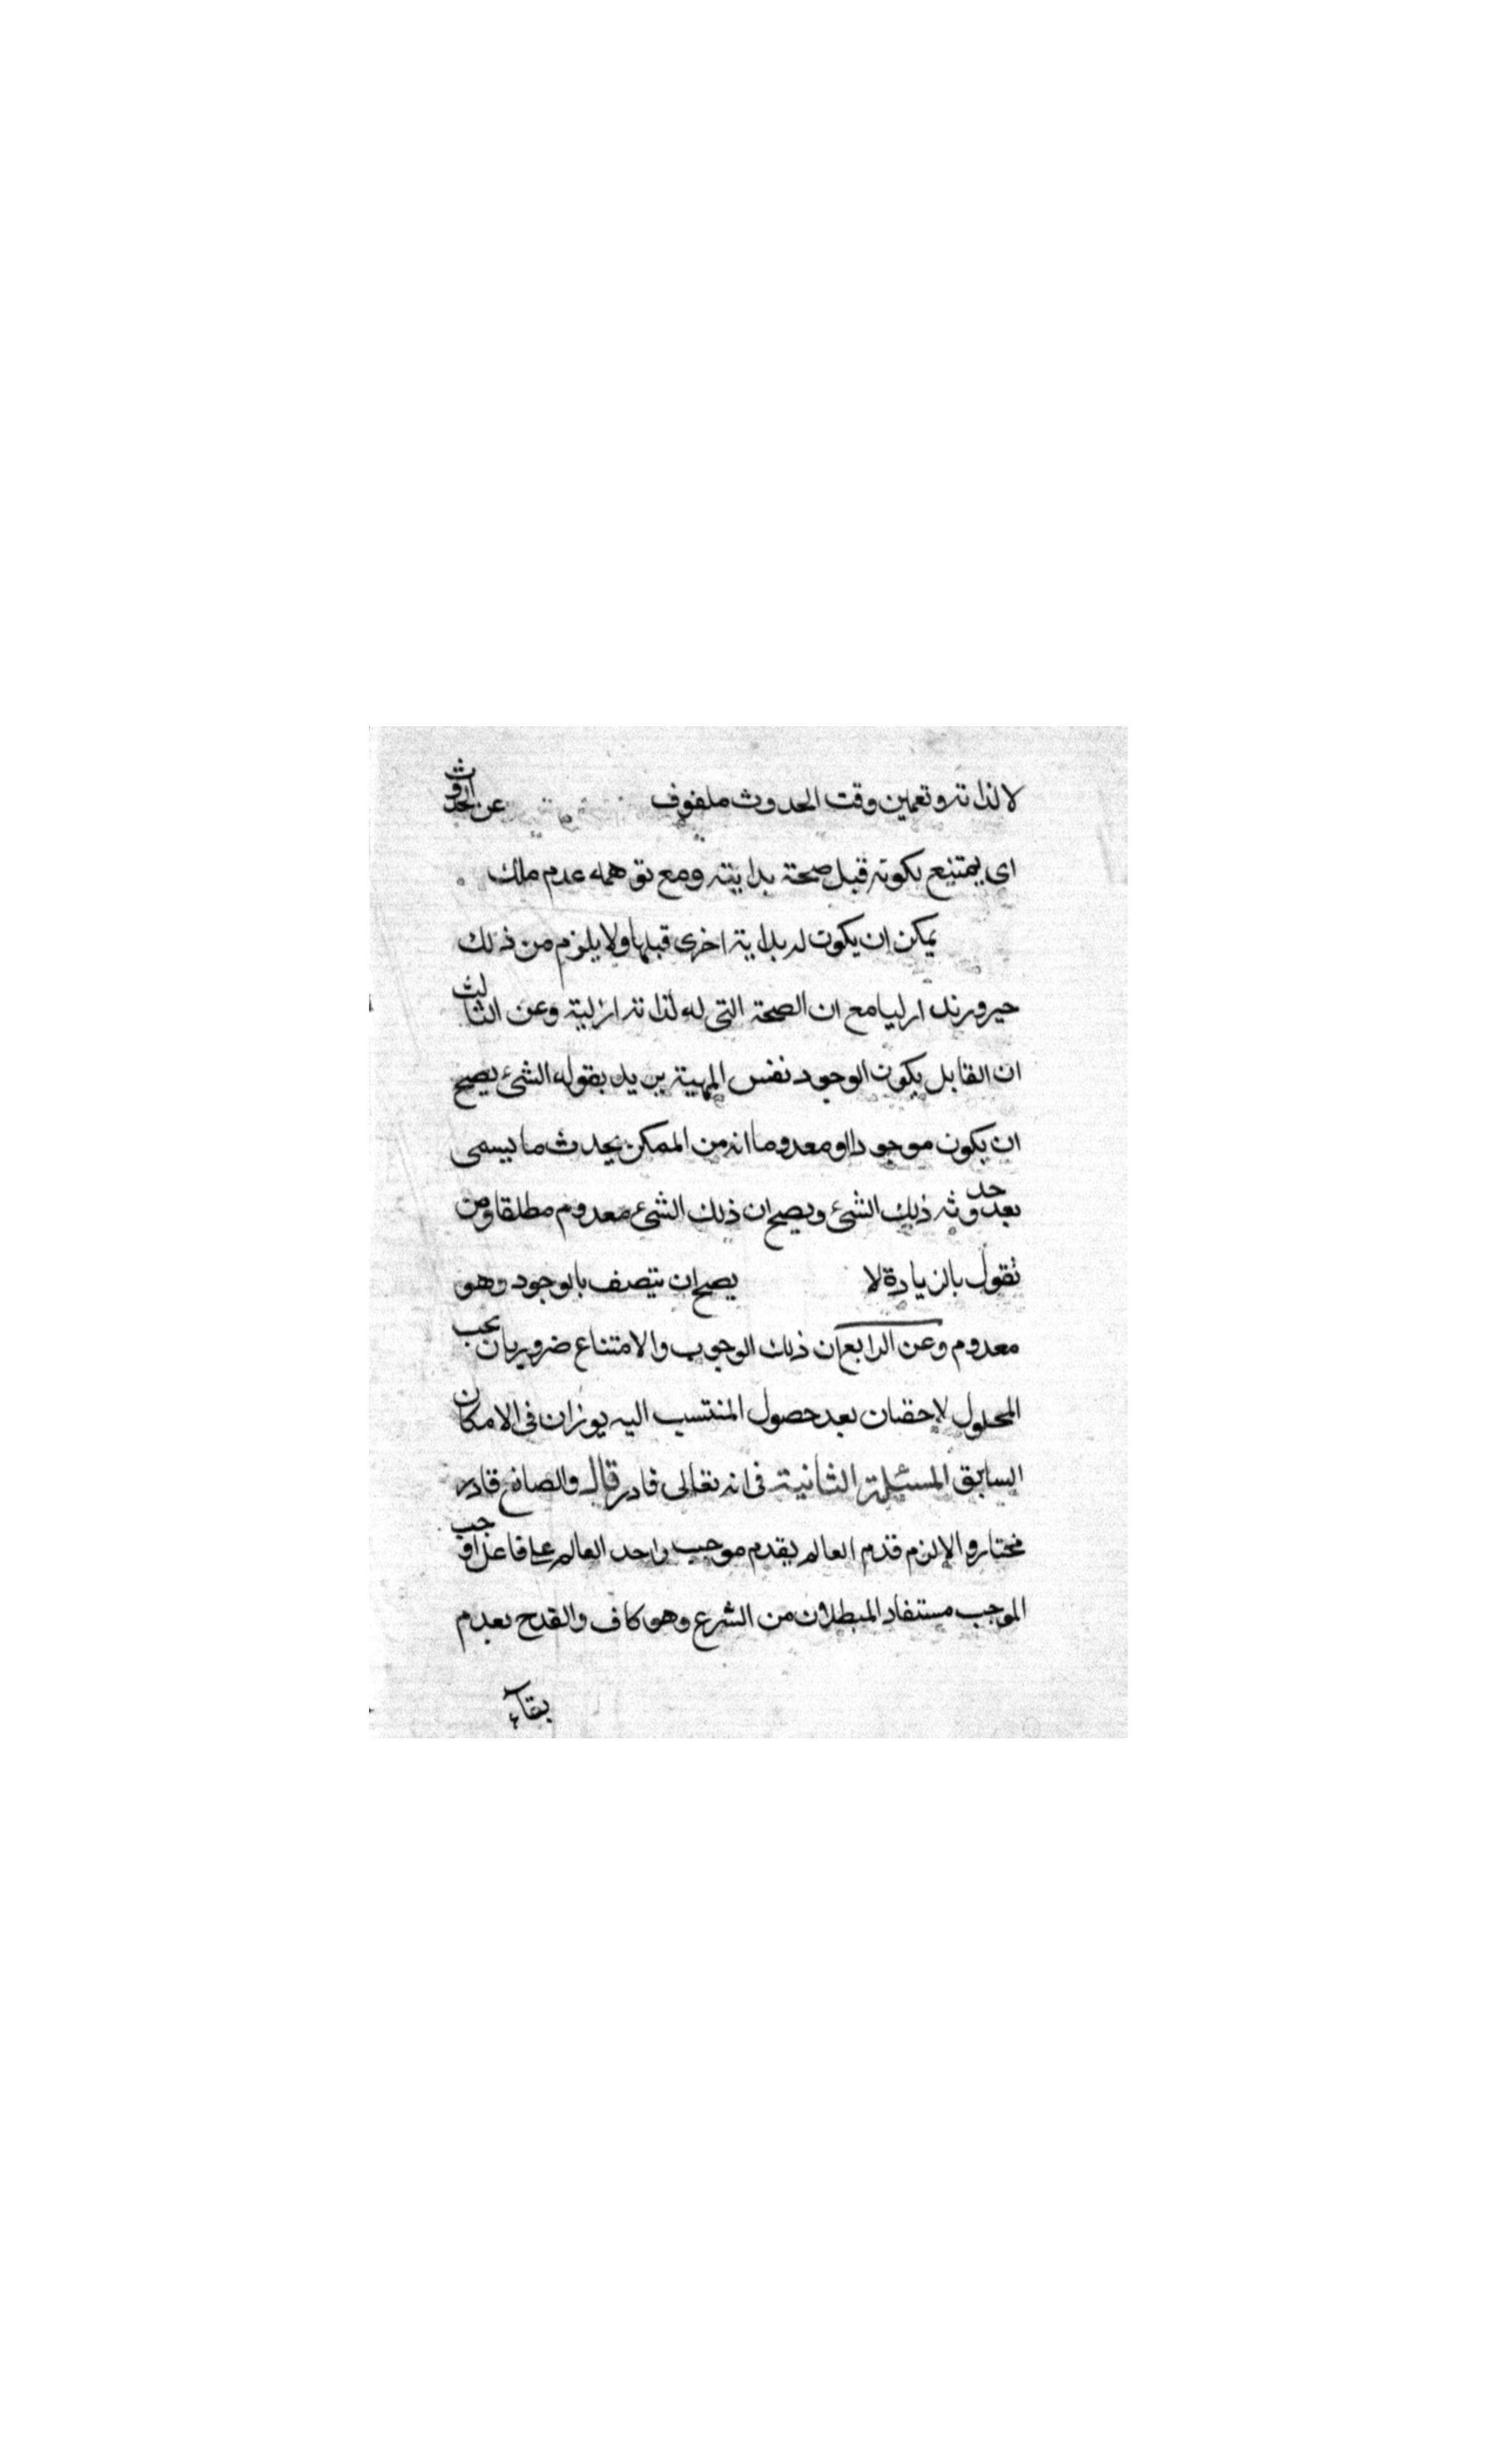 لا لذاته وتعيين وقت الحدوث ملفوف عن الحدوث
اى يمتنع بكونه قبل صحة بدايته ومع توهمه عدم ملك
يمكن ان يكون له بداية اخرى قبلها ولا يلزم من ذلك
حيرورته ارليا مع ان الصحة التى له لذاته ازلية وعن الثالث
ان القابل يكون الوجود نفس المهية يريد بقوله الشئ يصح
ان يكون موجودا او معدوما انه من الممكن يحدث ما يسمى
بعد حدوثه ذلك الشئ ويصح ان ذلك الشئ معدوم مطلقا ومن
نقول بالزيادة لا يصح ان يتصف بالوجود وهو
معدوم وعن الرابع ان ذلك الوجوب والامتناع ضروريان بحب
المحلول لاحقان بعد حصول المنتسب اليه يوزان فى الامكان
السابق المسئلة الثانية فى انه تعالى قادر قال والصانع قادر
مختار والا لزم قدم العالم بقدم موجب واحد العالم على فاعل اوجب
الموجب مستفاد المبطلان من الشرع وهو كاف والقدح بعدم
بقاء